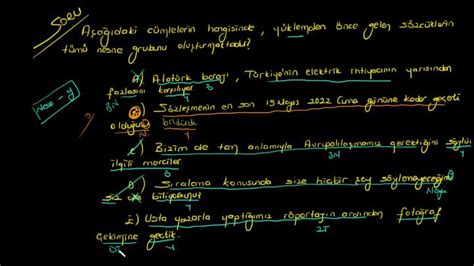 Soru
Aşağıdaki cümlelerin hangisinde, yüklemden önce gelen sözcüklerin
tümü nesne grubunu oluşturmaktadır?
A) Atatürk barajı, Türkiye'nin elektrik ihtiyacının yarısından
fazlasını karşılıyor.
BN Y
Nesne - y
B) Sözleşmenin en son 15 Mayıs 2022 Cuma gününe kadar geçerli
olduğunu bildirdik
N Y
C) Bizim de tam anlamıyla Avrupalılaşmamız gerektiğini söylüyor
BN Y
ilgili merciler
Ö
D) Sıralama konusunda size hiçbir şey söylenmeyeceğini
siz de biliyordunuz
Ö Y
E) Usta yazarla yaptığımız röportajın ardından fotoğraf
ZT
çekimine geçtik.
DT Y